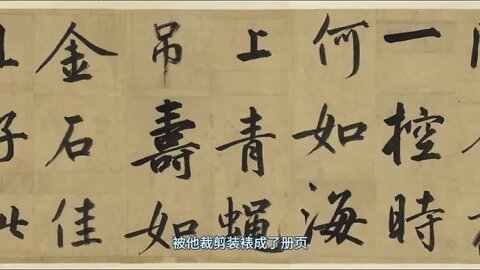 一控時
何如海
上青蠅
吊壽如
金石佳
被他裁剪装裱成了册页